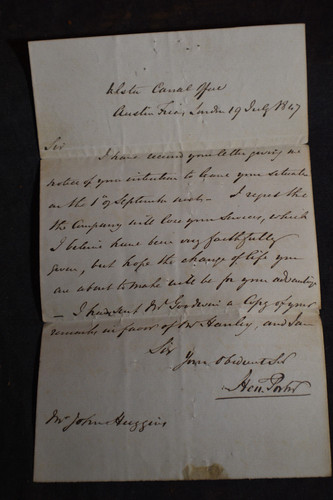 Ulster Canal Office
Austin Friars, London 19 July 1847
Sir
I have received your letter giving me
notice of your intention to leave your situation
on the 1st of September next - I regret that
the Company will lose your services, which
I believe have been very faithfully
given, but hope the change of life you
are about to make will be for your advantage
- I have sent Mr Goodwin a Copy of your
remarks in favor of Mr Hanley, and I am
Sir
Your Obedient St
Hen. Porter
Mr John Huggins